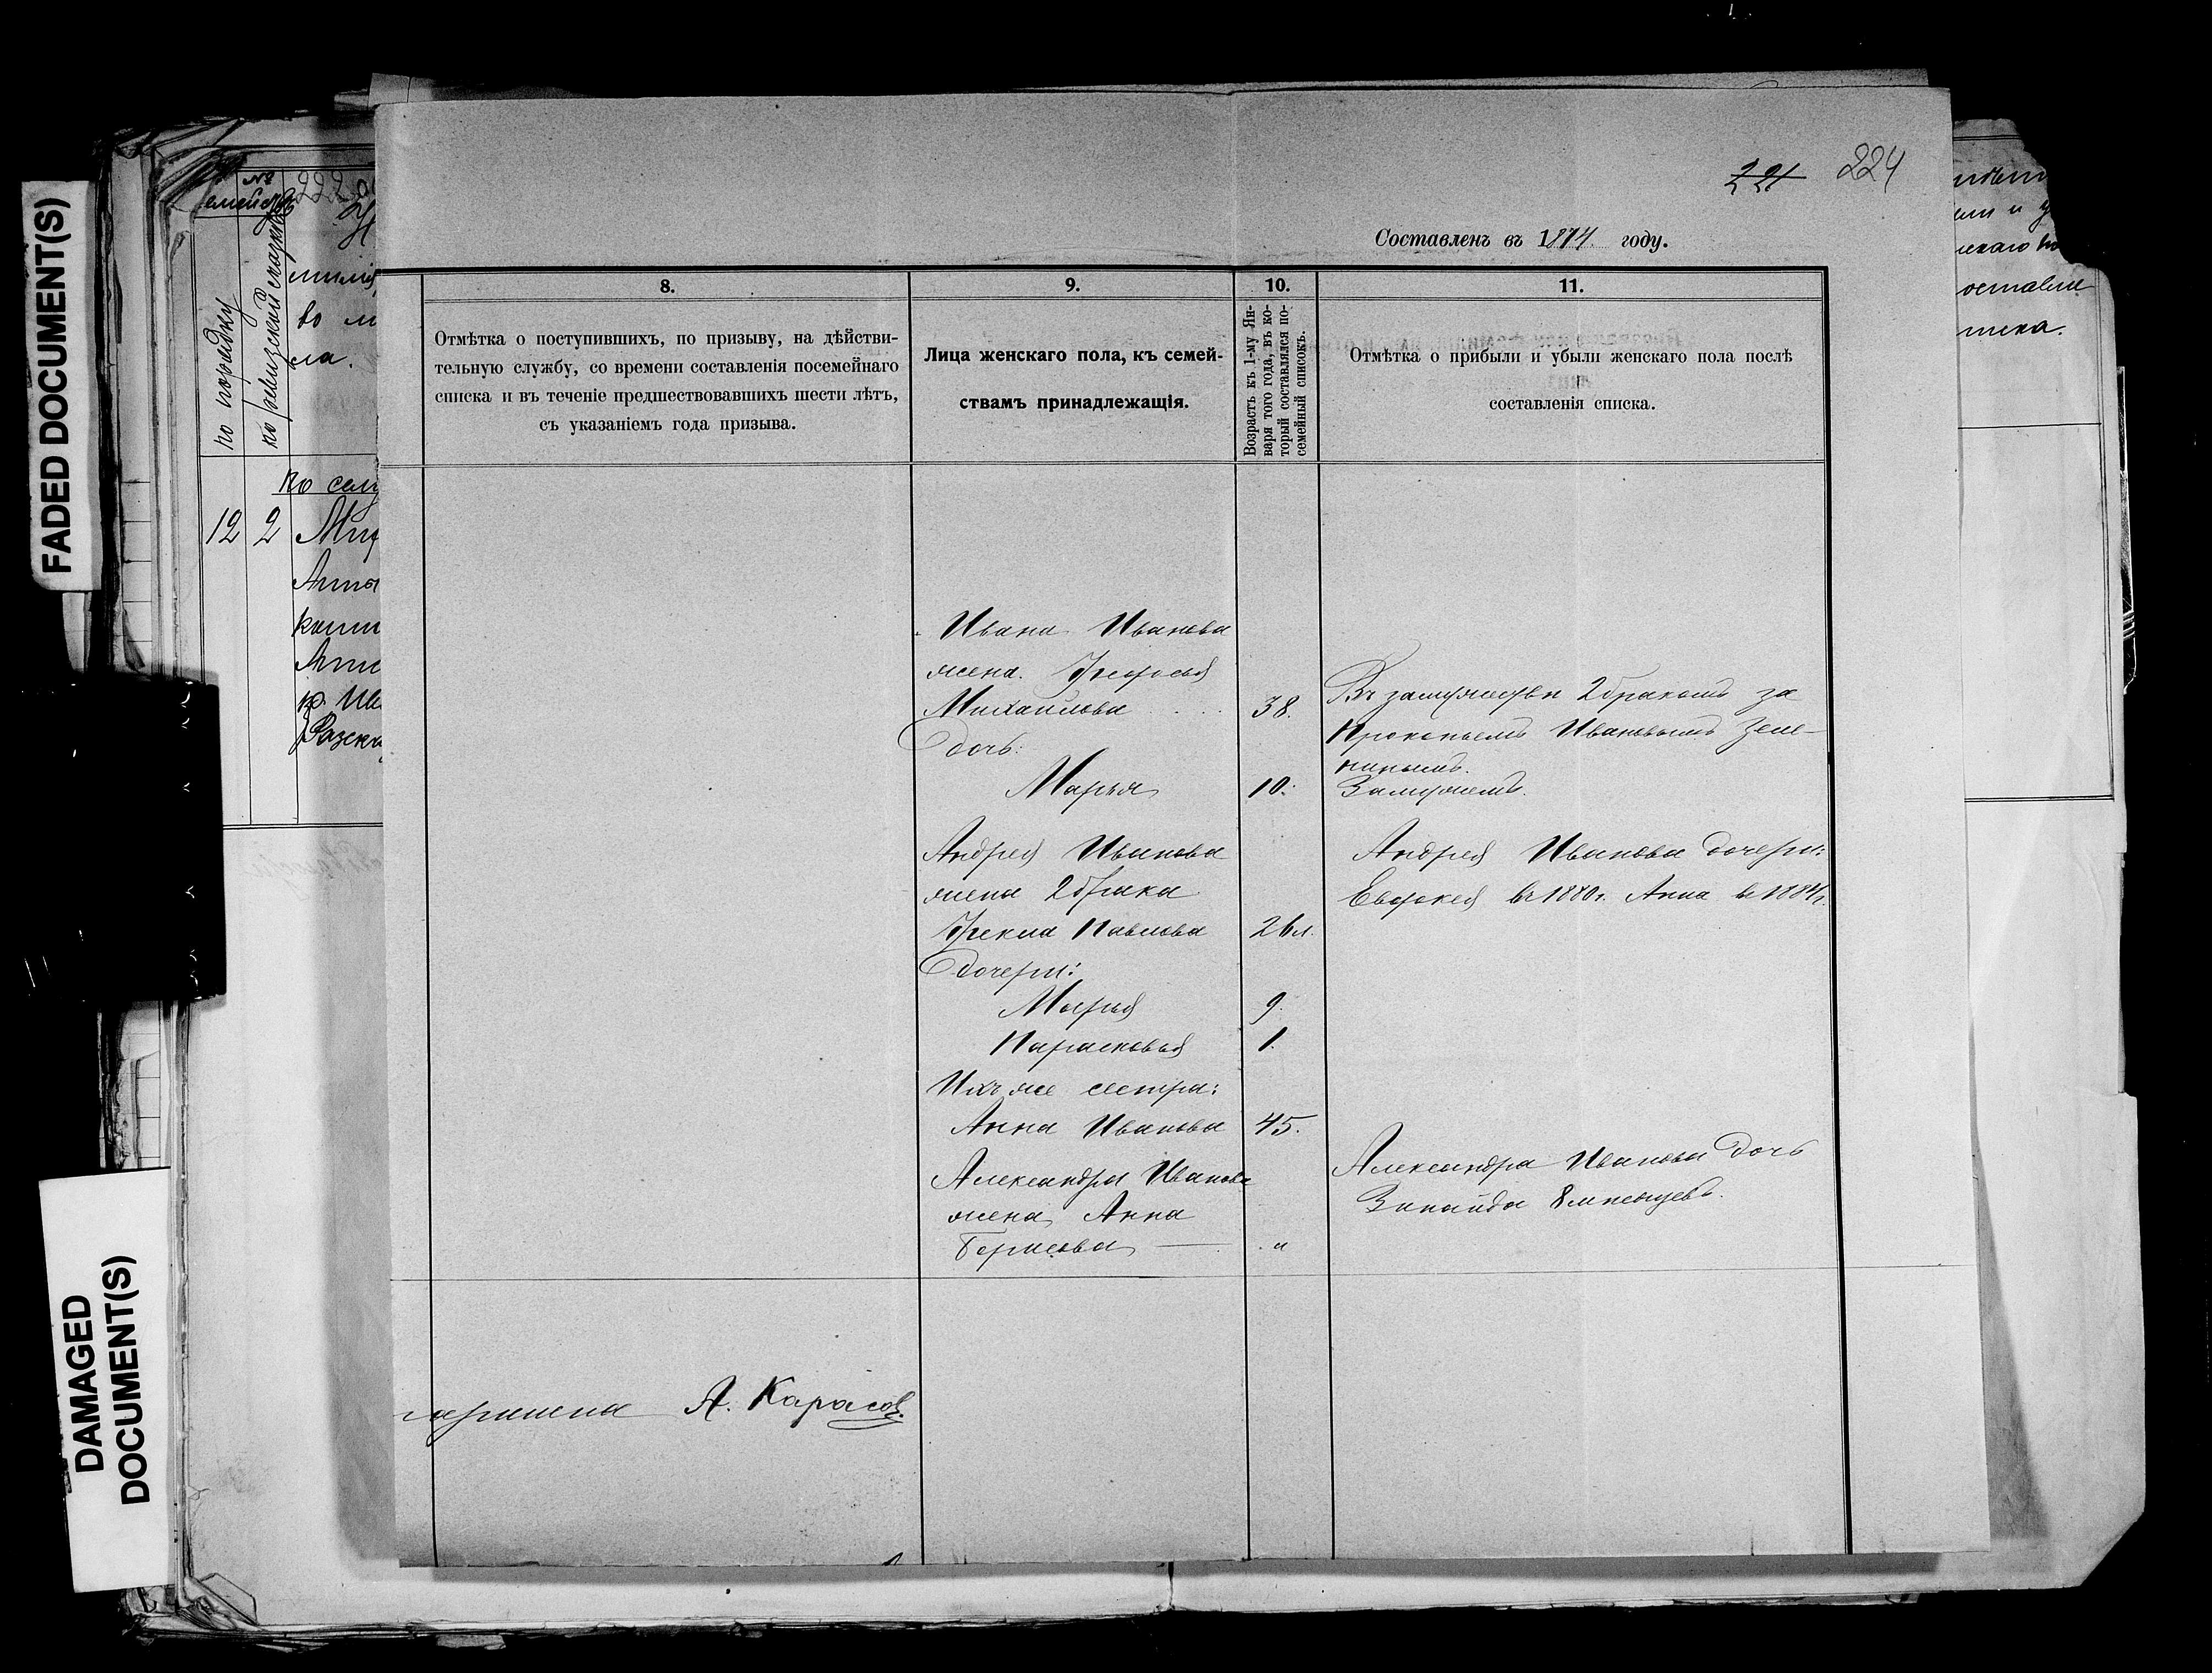 FADED DOCUMENT(S)
DAMAGED
DOCUMENT(S)
221 224
Составленъ въ 1874 году.
8.
Отмѣтка о поступившихъ, по призыву, на дѣйстви-
тельную службу, со времени составленія посемейнаго
списка и въ теченіе предшествовавшихъ шести лѣтъ,
съ указаніемъ года призыва.
9.
Лица женскаго пола, къ семей-
ствамъ принадлежащія.
10.
Возрастъ къ 1-му Ян-
варя того года, въ ко-
торый составлялся по-
семейный списокъ.
11.
Отмѣтка о прибыли и убыли женскаго пола послѣ
составленія списка.
№
по порядку
по ревизской сказкѣ
12 2
Ивана Иванова
жена
Михайлова 38.
Въ замужествѣ 2 бракомъ за
Прокопьемъ Ивановымъ Зеле-
нинымъ.
дочь:
Марья 10.
Замужемъ.
Андрея Иванова
жена 2 брака
Фекла Павлова 26 л.
Андрея Иванова дочери:
въ 1880 г. Анна въ
дочери:
Марья 9.
Парасковья 1.
Ихъ же сестра:
Анна Иванова 45.
Александра Иванова
жена Анна
Борисова — "
Александра Иванова дочь
Зинаида 8 мѣсяцевъ.
А. Карасов